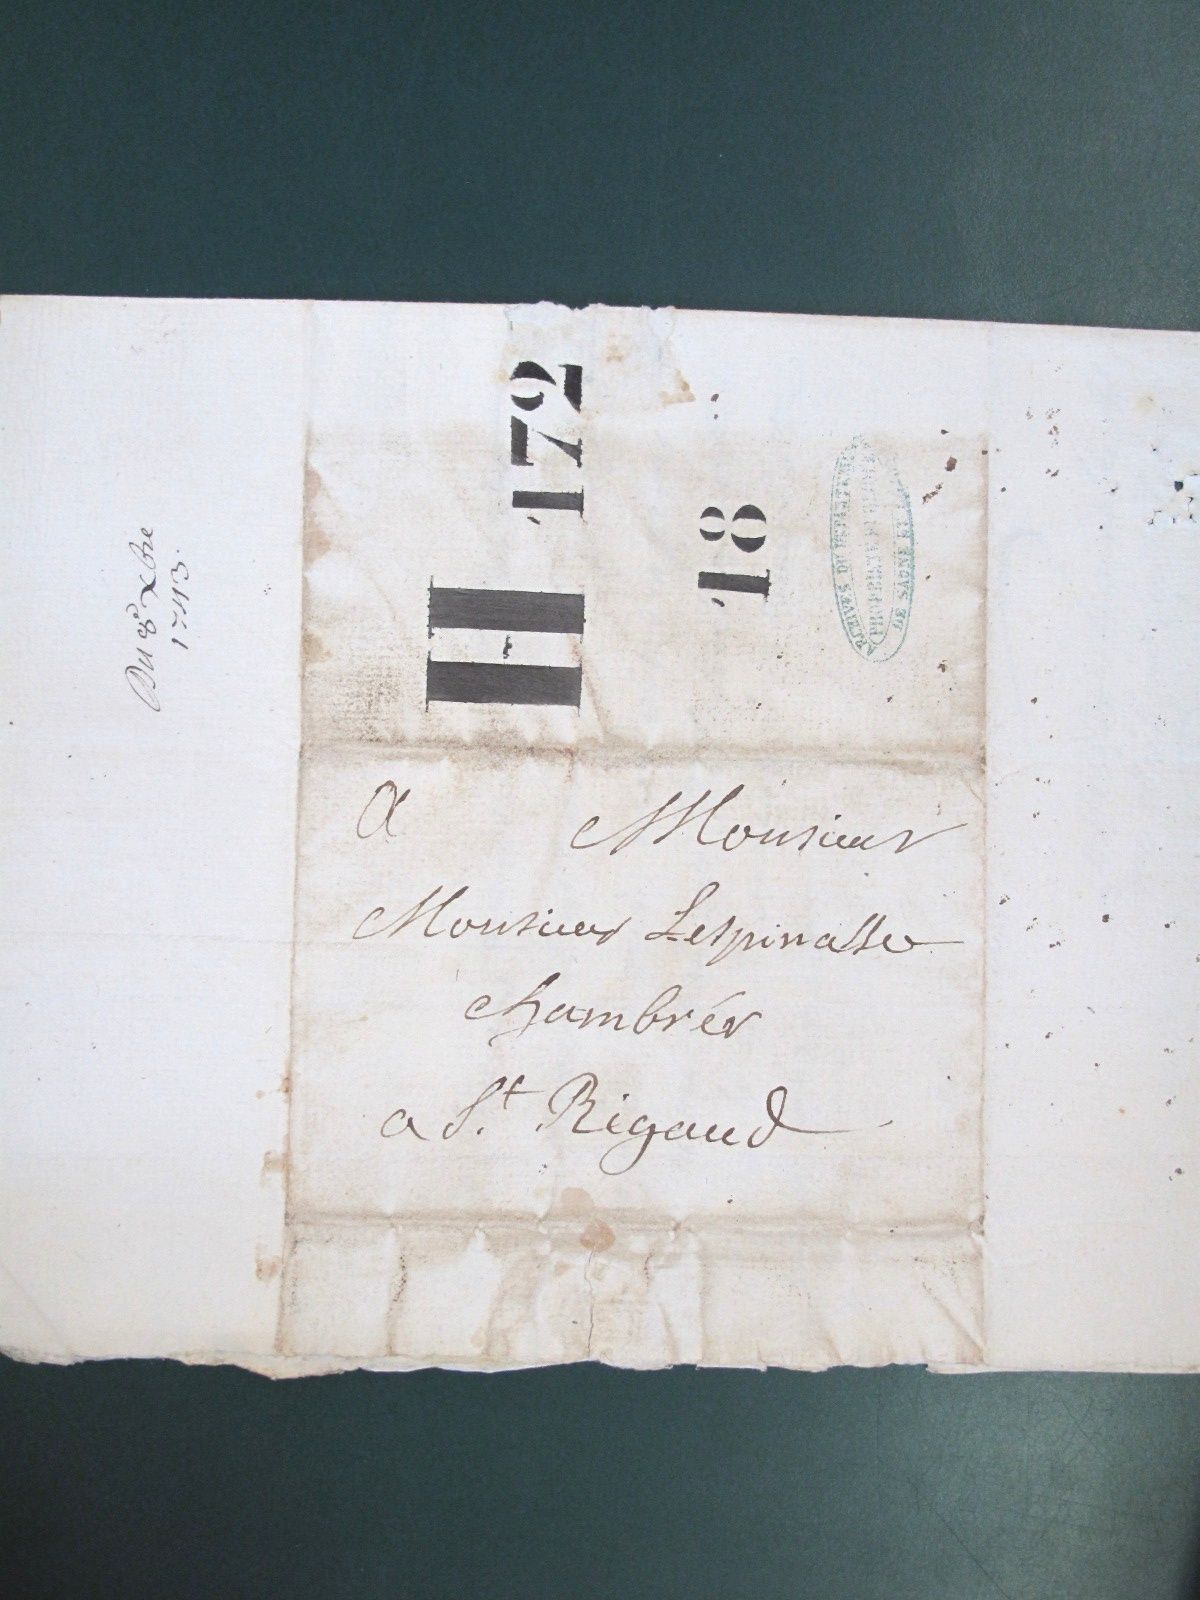 Du 8e Xbre
1743.
H 172
18
ARCHIVES DU DÉPARTEMENT
PROPRIÉTÉ PUBLIQUE
DE SAONE ET
A Monsieur
Monsieur Lespinasse
Chambrér
a St. Rigaud